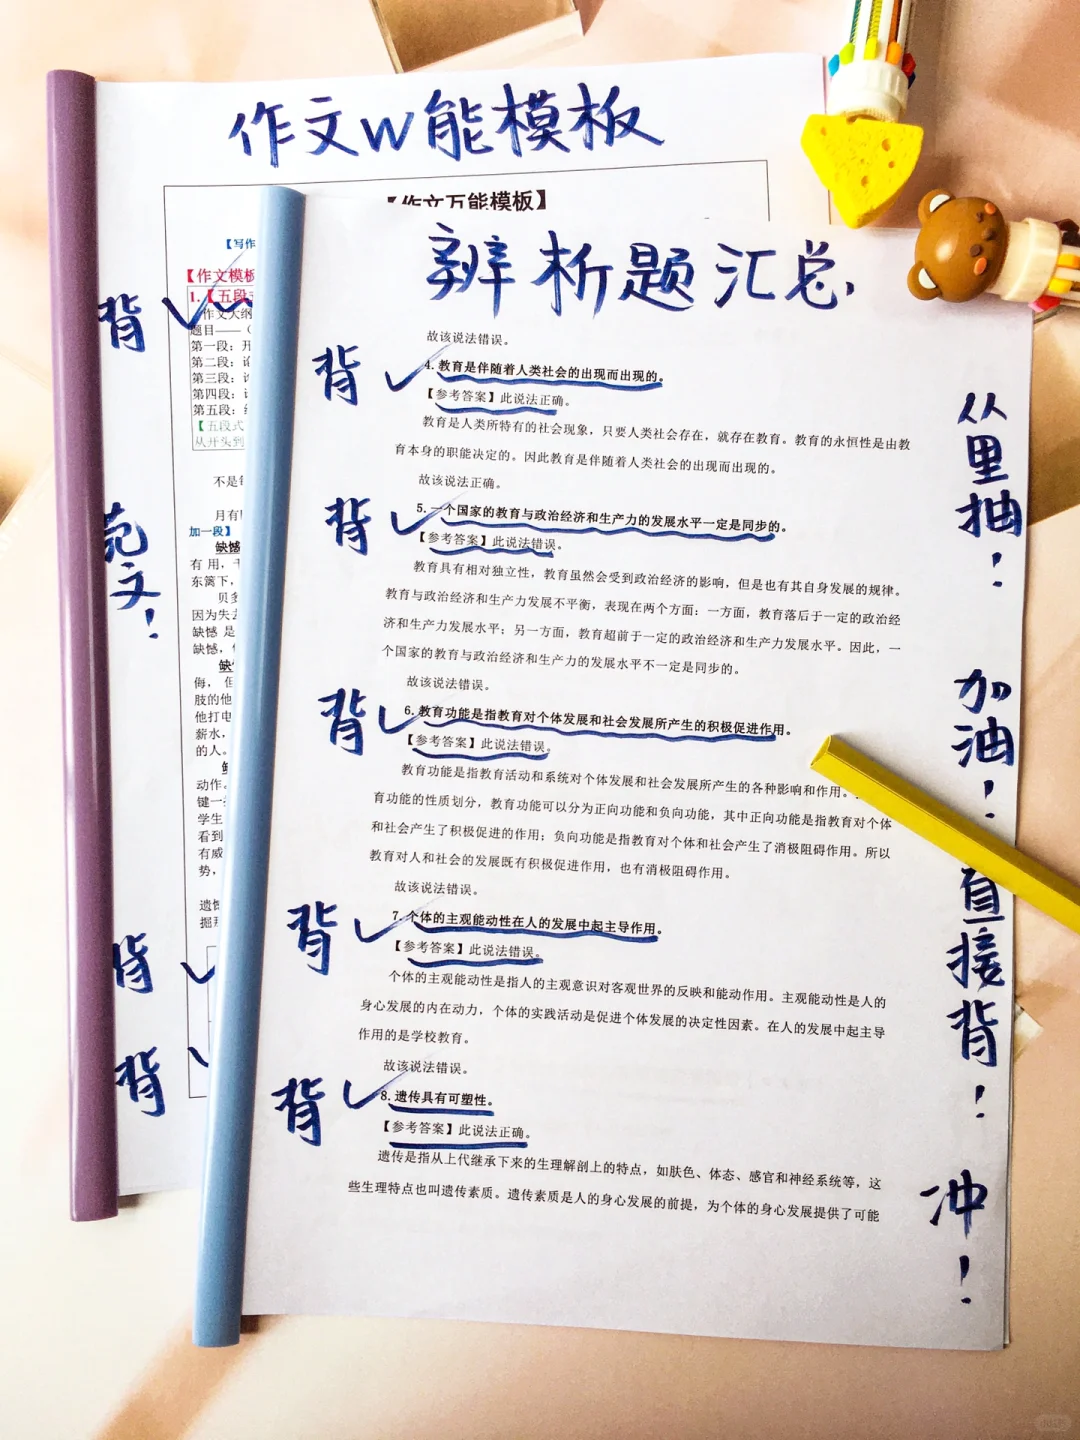 作文W能模板
【作文万能模板】
【写作
【作文模板
1.【五段
作文大纲
题目——（
第一段：开
第二段：论
第三段：
第四段：
第五段：
【五段式
从开头到
不是每
月有
加一段】
缺憾
有 用，
东篱下，
贝多
因为失去
缺憾 是
缺憾，
缺
侮， 但
肢的他
他打电
薪水，
的人。
动作。
键一
学生
看到
有威
势，
遗憾
掘
背
范文！
背
背
辨析题汇总
故该说法错误。
背
4. 教育是伴随着人类社会的出现而出现的。
【参考答案】此说法正确。
教育是人类所特有的社会现象，只要人类社会存在，就存在教育。教育的永恒性是由教
育本身的职能决定的。因此教育是伴随着人类社会的出现而出现的。
故该说法正确。
背
5. 一个国家的教育与政治经济和生产力的发展水平一定是同步的。
【参考答案】此说法错误。
教育具有相对独立性，教育虽然会受到政治经济的影响，但是也有其自身发展的规律。
教育与政治经济和生产力发展不平衡，表现在两个方面：一方面，教育落后于一定的政治经
济和生产力发展水平；另一方面，教育超前于一定的政治经济和生产力发展水平。因此，一
个国家的教育与政治经济和生产力的发展水平不一定是同步的。
故该说法错误。
背
6. 教育功能是指教育对个体发展和社会发展所产生的积极促进作用。
【参考答案】此说法错误。
教育功能是指教育活动和系统对个体发展和社会发展所产生的各种影响和作用。
育功能的性质划分，教育功能可以分为正向功能和负向功能，其中正向功能是指教育对个体
和社会产生了积极促进的作用；负向功能是指教育对个体和社会产生了消极阻碍作用。所以
教育对人和社会的发展既有积极促进作用，也有消极阻碍作用。
故该说法错误。
背
7. 个体的主观能动性在人的发展中起主导作用。
【参考答案】此说法错误。
个体的主观能动性是指人的主观意识对客观世界的反映和能动作用。主观能动性是人的
身心发展的内在动力，个体的实践活动是促进个体发展的决定性因素。在人的发展中起主导
作用的是学校教育。
故该说法错误。
背
8. 遗传具有可塑性。
【参考答案】此说法正确。
遗传是指从上代继承下来的生理解剖上的特点，如肤色、体态、感官和神经系统等，这
些生理特点也叫遗传素质。遗传素质是人的身心发展的前提，为个体的身心发展提供了可能
从里抽！
加油！
直接背！
冲！